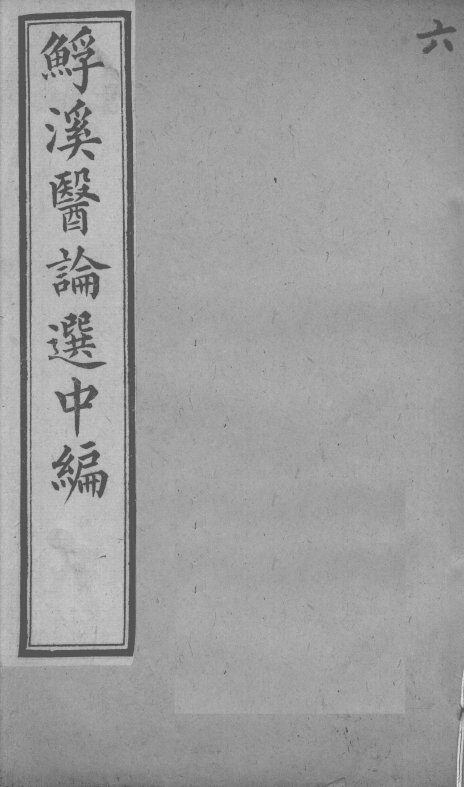 六
鯚溪醫論選中編